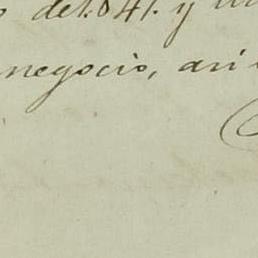 del.841. y
negocio, asi